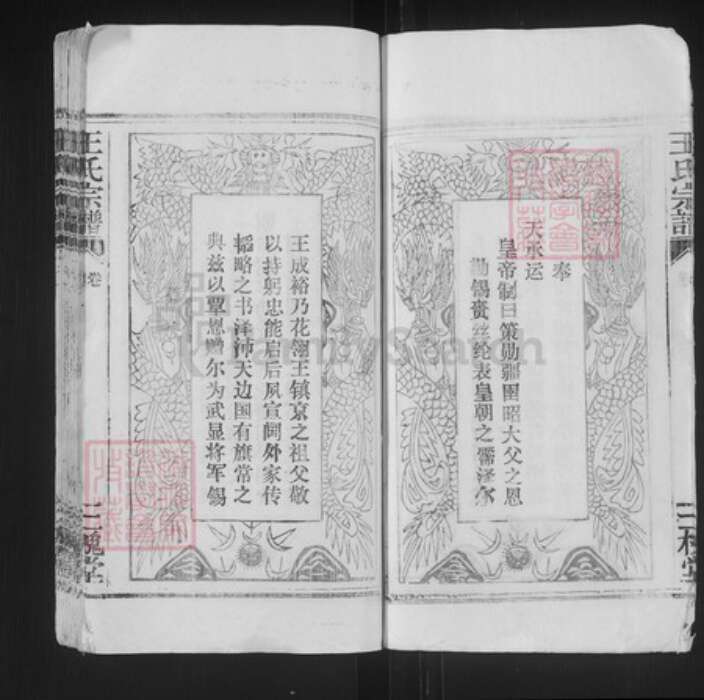 王氏宗譜
奉
天承运
皇帝制曰策勋疆圉昭大父之恩
勤锡赉丝纶表皇朝之霈泽尔
三槐堂
王成裕乃花翎王镇京之祖父敬
以持躬忠能启后夙宣阃外家传
韬略之书泽沛天边国有旗常之
典兹以覃恩赠尔为武显将军锡
王氏宗譜
卷
三槐堂
FamilySearch